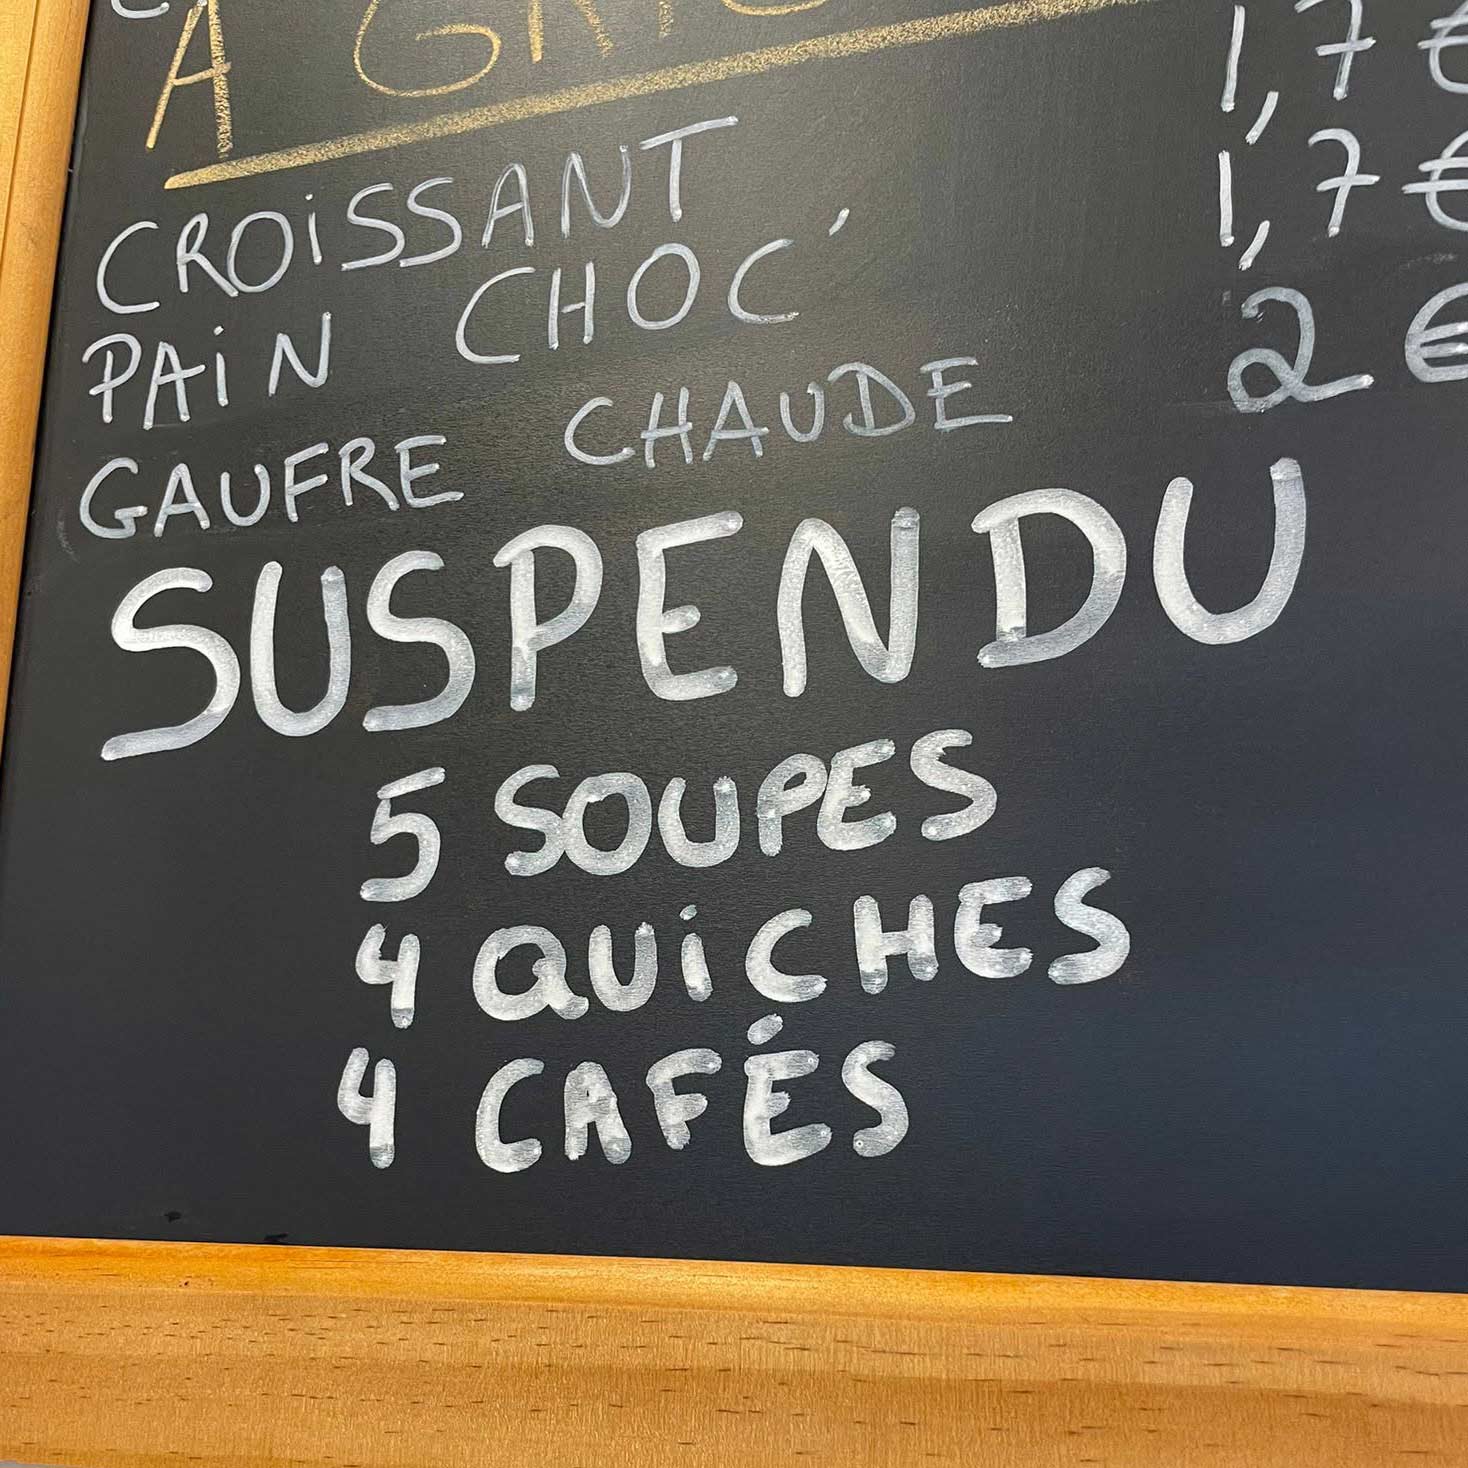 CROISSANT 1,7 €
PAIN CHOC' 1,7 €
GAUFRE CHAUDE 2 €
SUSPENDU
5 SOUPES
4 QUICHES
4 CAFÉS